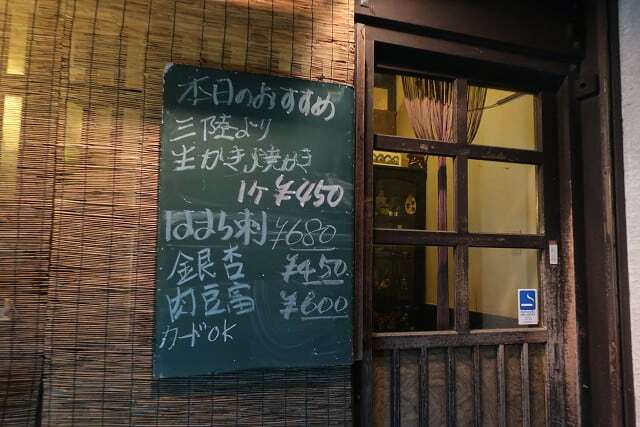 本日のおすすめ
三陸より
生かき、焼かき
1ケ ¥450
はまち刺 ¥680
銀杏 ¥450
肉豆富 ¥600
カードOK